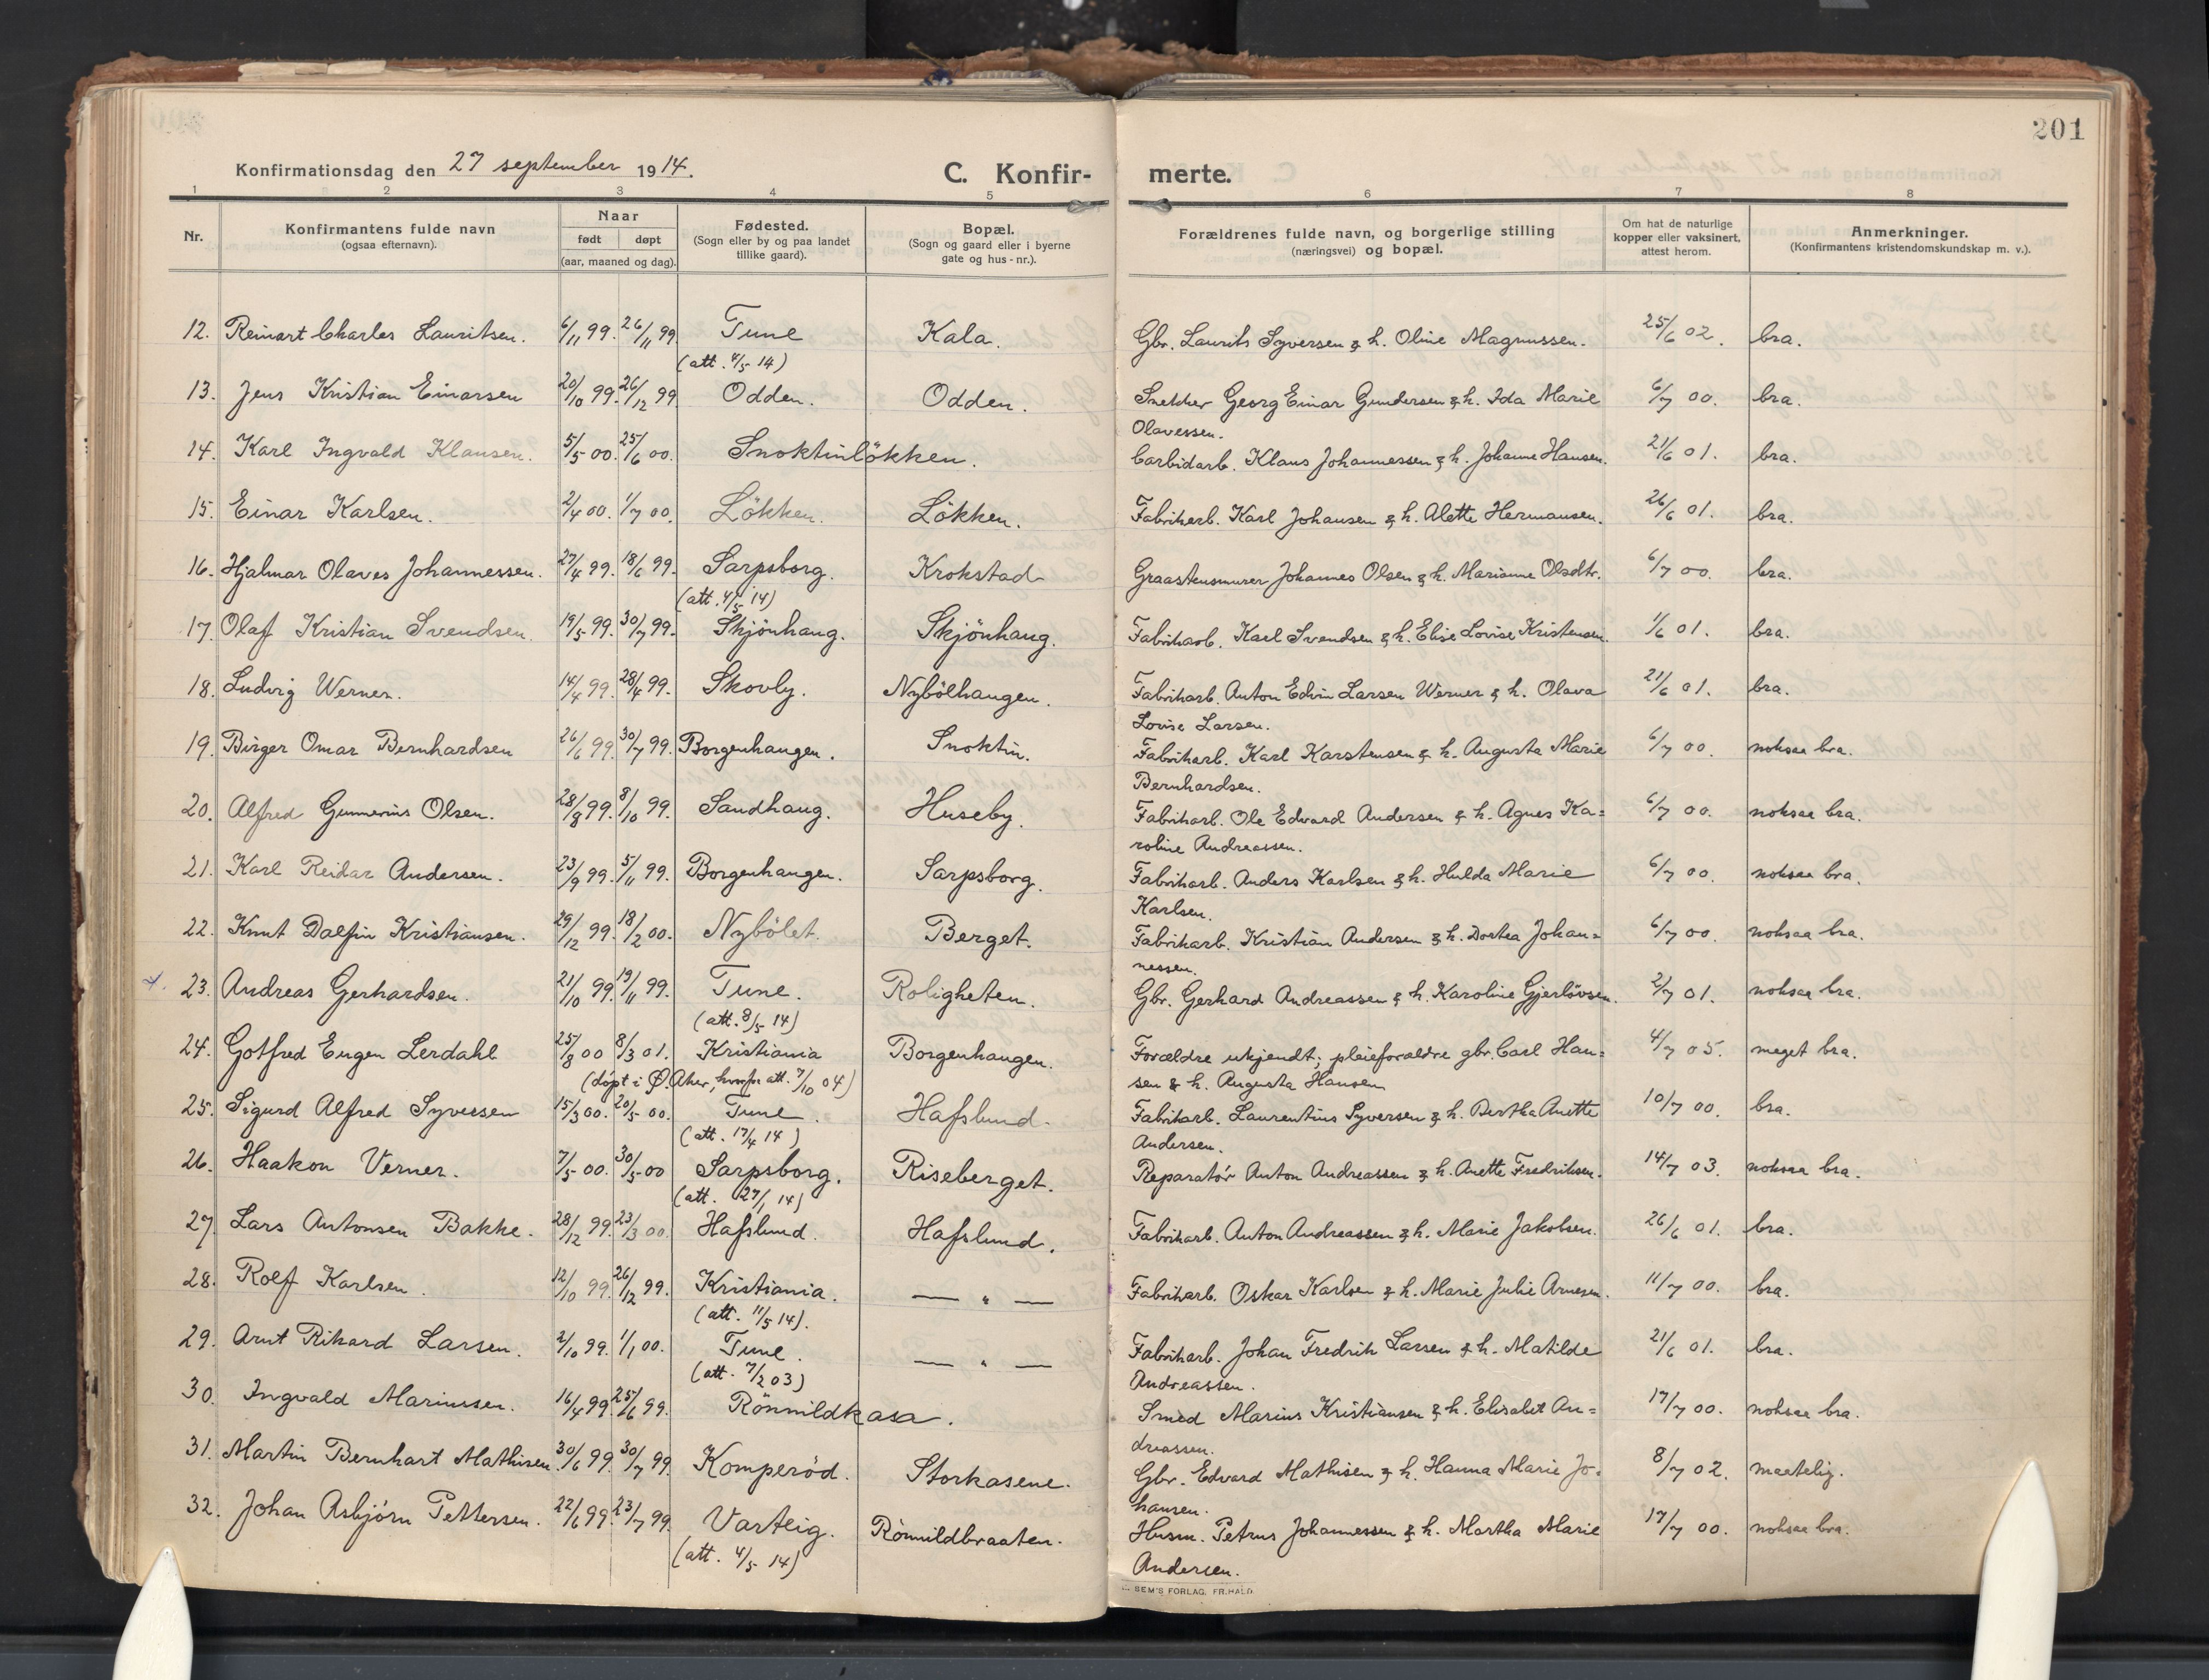 201
Konfirmationsdag den 27 september 1914.
C. Konfir- merte.
1 2 3 4 5 6 7 8
Nr.
Konfirmantens fulde navn
(ogsaa efternavn).
Naar
født døpt
(aar, maaned og dag).
Fødested.
(Sogn eller by og paa landet
tillike gaard).
Bopæl.
(Sogn og gaard eller i byerne
gate og hus-nr.).
Forældrenes fulde navn, og borgerlige stilling
(næringsvei) og bopæl.
Om hat de naturlige
kopper eller vaksinert,
attest herom.
Anmerkninger.
(Konfirmantens kristendomskundskap m. v.).
12. Reinart Charles Lauritsen. 6/11 99. 26/11 99. Tune Kala. Gbr. Laurits Syversen & h. Oline Magnussen. 25/6 02. bra.
(att. 4/5 14)
13. Jens Kristian Einarsen 20/10 99. 26/12 99. Odden. Odden. Snekker Georg Einar Gundersen & h. Ida Marie 6/7 00. bra.
Olavessen.
14. Karl Ingvald Klausen. 5/5 00. 25/6 00. Snoktinlökken. Carbidarb. Klaus Johannessen & h. Johanne Hansen. 21/6 01. bra.
15. Einar Karlsen. 2/4 00. 1/7 00. Lökken. Lökken. Fabrikarb. Karl Johansen & h. Alette Hermansen. 26/6 01. bra.
16. Hjalmar Olaves Johannessen. 27/4 99. 18/6 99. Sarpsborg. Krokstad Graastensmurer Johannes Olsen & h. Marianne Olsdtr. 6/7 00. bra.
(att. 4/5 14)
17. Olaf Kristian Svendsen. 19/5 99. 30/7 99. Skjönhaug. Skjönhaug. Fabrikarb. Karl Svendsen & h. Elise Lovise Kristensen. 1/6 01. bra.
18. Ludvig Werner. 14/4 99. 28/4 99. Skovly. Nybölhaugen. Fabrikarb. Anton Edvin Larsen Werner & h. Olava 21/6 01. bra.
Lovise Larsen.
19. Birger Omar Bernhardsen 26/6 99. 30/7 99. Borgenhaugen. Snoktin. Fabrikarb. Karl Karstensen & h. Augusta Marie 6/7 00. noksaa bra.
Bernhardsen.
20. Alfred Gunnerius Olsen. 28/8 99. 8/10 99. Sandhaug. Huseby. Fabrikarb. Ole Edvard Andersen & h. Agnes Ka= 6/7 00. noksaa bra.
roline Andreassen.
21. Karl Reidar Andersen. 23/9 99. 5/11 99. Borgenhaugen. Sarpsborg. Fabrikarb. Anders Karlsen & h. Hulda Marie 6/7 00. noksaa bra.
Karlsen.
22. Knut Dalfin Kristiansen. 29/12 99. 18/2 00. Nybölet. Berget. Fabrikarb. Kristian Andersen & h. Dortea Johan= 6/7 00. noksaa bra.
nessen.
23. Andreas Gerhardsen. 21/10 99. 19/11 99. Tune. Roligheten. Gbr. Gerhard Andreassen & h. Karoline Gjerlövsen. 2/7 01. noksaa bra.
(att. 8/5 14)
24. Gotfred Eugen Lerdahl 25/8 00 8/3 01. Kristiania Borgenhaugen. Forældre ukjendt; pleieforældre gbr. Carl Han= 4/7 05. meget bra.
(døpt i Ø. Aker, hvorfor att. 7/10 04) sen & h. Augusta Hansen
25. Sigurd Alfred Syversen 15/3 00. 20/5 00. Tune. Hafslund. Fabrikarb. Laurentius Syversen & h. Bertha Anette 10/7 00. bra.
(att. 17/4 14) Andersen.
26. Haakon Verner. 7/5 00. 30/5 00 Sarpsborg. Riseberget. Reparatör Anton Andreassen & h. Anette Fredriksen. 14/7 03. noksaa bra.
(att. 27/1 14)
27. Lars Antonsen Bakke. 28/12 99. 23/3 00. Hafslund. Hafslund. Fabrikarb. Anton Andreassen & h. Marie Jakobsen. 26/6 01. bra.
28. Rolf Karlsen. 12/10 99. 26/12 99. Kristiania. — " — Fabrikarb. Oskar Karlsen & h. Marie Julie Arnesen. 11/7 00. bra.
(att. 11/5 14).
29. Arnt Rikard Larsen. 2/10 99. 1/1 00. Tune. — " — Fabrikarb. Johan Fredrik Larsen & h. Matilde 21/6 01. bra.
(att. 7/2 03) Andreassen.
30. Ingvald Mariussen. 16/4 99. 25/6 99. Rönnildkasa. Smed Marius Kristiansen & h. Elisabet An= 17/7 00. noksaa bra.
dreassen.
31. Martin Bernhart Mathisen 30/6 99. 30/7 99. Komperöd. Storkasene. Gbr. Edvard Mathisen & h. Hanna Marie Jo= 8/7 02. maatelig.
hansen.
32. Johan Asbjörn Pettersen. 22/6 99. 23/7 99. Varteig. Rönnildbraaten. Husm. Petrus Johannessen & h. Martha Marie 17/7 00. noksaa bra.
(att. 4/5 14) Andersen.
SEM'S FORLAG, FR.HALD